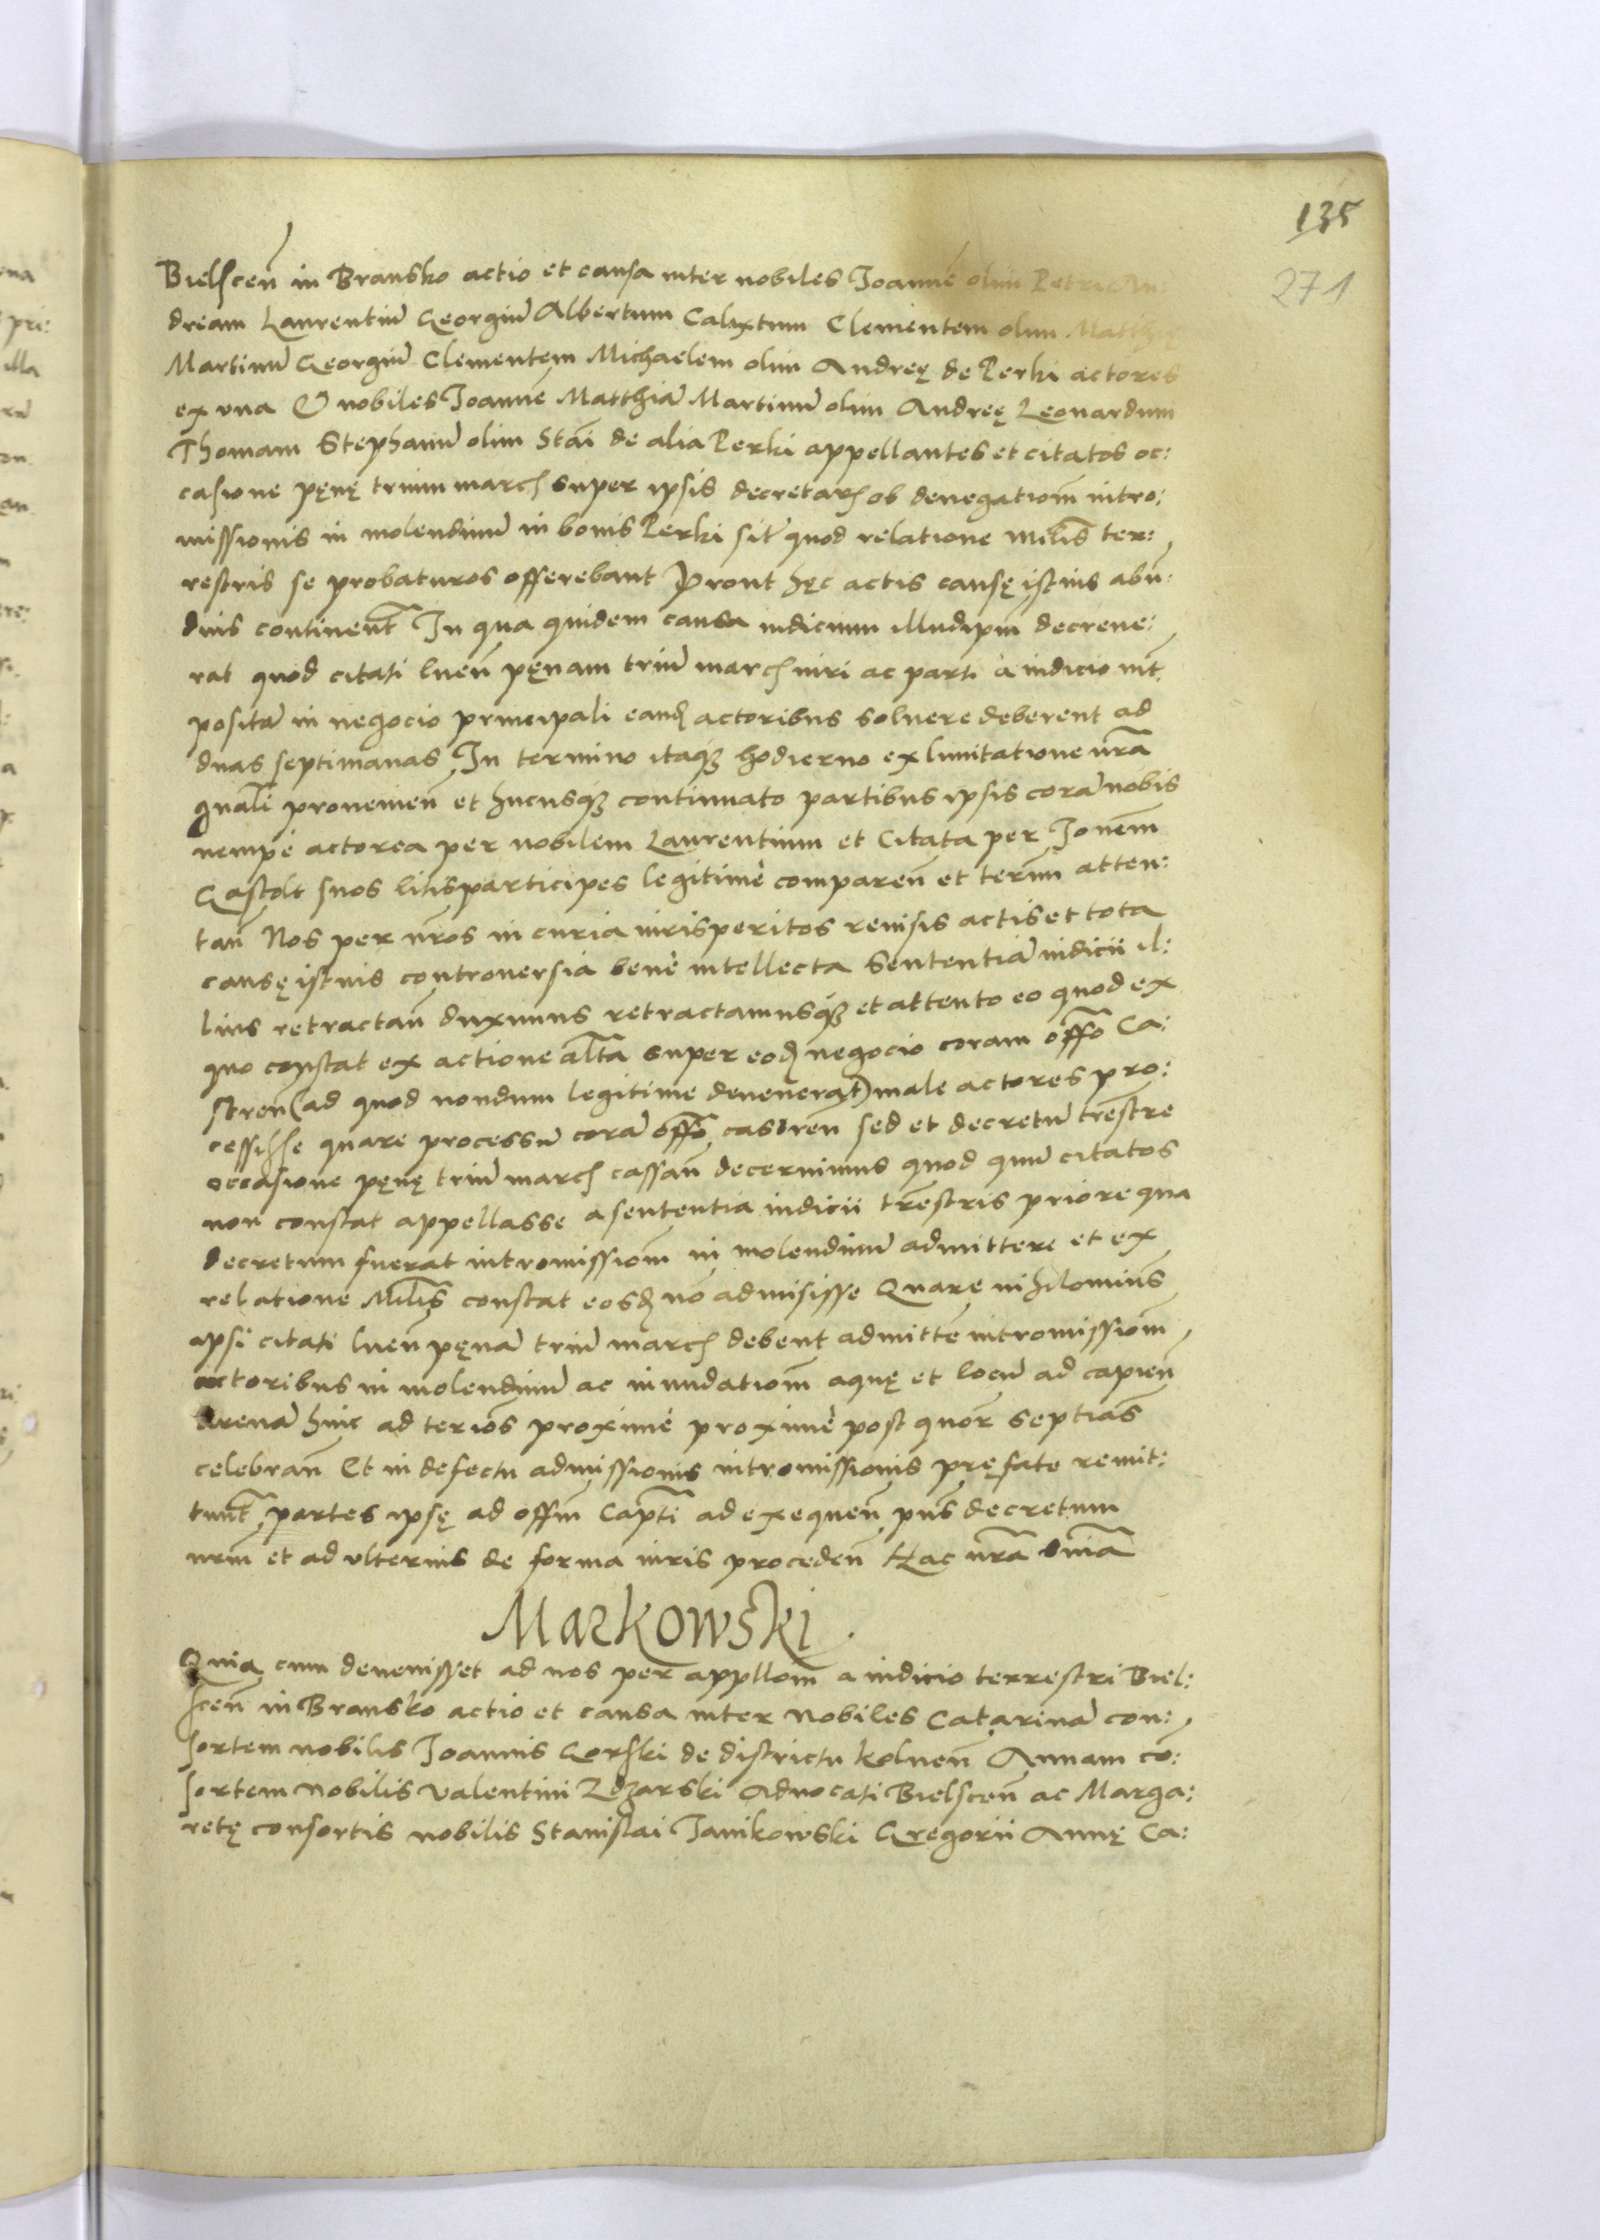 135
271
Bielscen̄ in Bransko actio et causa inter nobiles Joannē olim Petri An:
dream Laurentiū Georgiū Albertum Calixtum Clementem olim Matthię
Martinū Georgiū Clementem Michaelem olim Andreę de Perki actores
ex vna Et nobiles Joannē Matthiā Martinū olim Andreę Leonardum
Thomam Stephanū olim Stāi de alia Perki appellantes et citatos oc:
casione pęnę trium march super ipsis decretarh ob denegationm̄ intro:
missionis in molendinū in bonis Perki sit̄ quod relatione Mil̄is ter:
restris se probaturos offerebant Prout hęc actis causę istius abun:
dius continent̄ In qua quidem causa iudicium illud ipm̄ decreue:
rat quod citati luen̄ pęnam triū march iuri ac parti à iudicio int̄
positā in negocio principali eand actoribus soluere deberent ad
duas septimanas In termino itaq3 hodierno ex limitatione nrā
gn̄ali prouenien̄ et hucusq3 continuato partibus ipsis corā nobis
nempè actorea per nobilem Laurentium et Citata per Jonēm
Gastolt suos litisparticipes legitimè comparen̄ et term̄ atten:
tan̄ Nos per nr̄os in curia iurisperitos reuisis actis et tota
causę istius controuersia benè intellecta Sententiā iudicii il:
lius retractan̄ duximus retractamusq3 et attento eo quod ex
quo constat ex actione alt̄a super eod negocio coram off̄o Ca:
stren̄ (ad quod nondum legitime deuenerat) male actores pro:
cessisse quare processū corā off̄o castren̄ sed et decretū tr̄estre
occasione pęnę triū march cassan̄ decernimus quod quiū citatos
non constat appellasse a sententia iudicii tr̄estris priore qua
decretum fuerat intromissionm̄ in molendinū admittere et ex
relatione Mil̄is constat eosd nō admisisse Quare nihilominus
ipsi citati luen̄ pęnā triū march debent admitt̄e intromissionm̄
actoribus in molendinū ac inundationm̄ aquę et locū ad capien̄
Arenā hinc ad terīos proximè proximè post quor̄ septīas
celebran̄ Et in defectu admissionis intromissionis pręfate remit:
tunt̄ partes ipsę ad offm̄ Capt̄i ad exequen̄ pn̄s decretum
nrm̄ et ad vlterius de forma iuris proceden̄ Hac nr̄a snīa
Markowski.
Quia cum deuenisset ad nos per appllom̄ a iudicio terrestri Biel:
scen̄ in Bransko actio et causa inter nobiles Catarinā con:
sortem nobilis Joannis Gorski de districtu kolnen̄ Annam cō:
sortem nobilis Valentini Zdzarski Aduocati Bielscen̄ ac Marga:
retę consortis nobilis Stanislai Janikowski Gregorii Annę Ca: